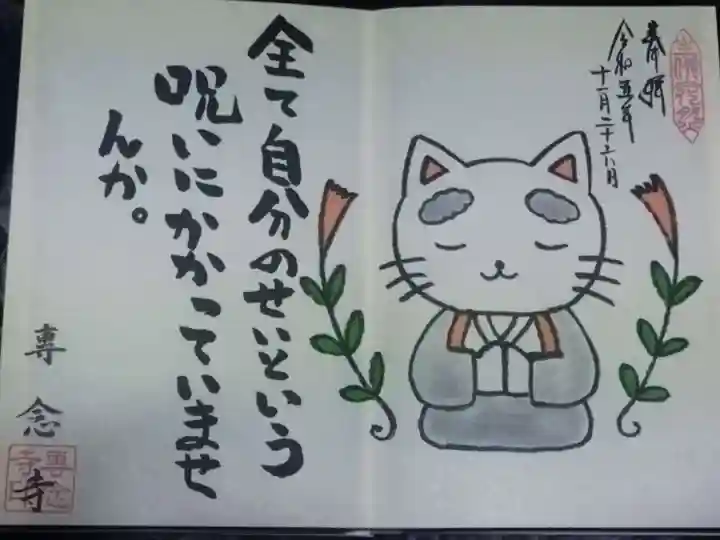 奉拝
令和五年
十一月二十六日
全て自分のせいという
呪いにかかっていませ
んか。
専念寺